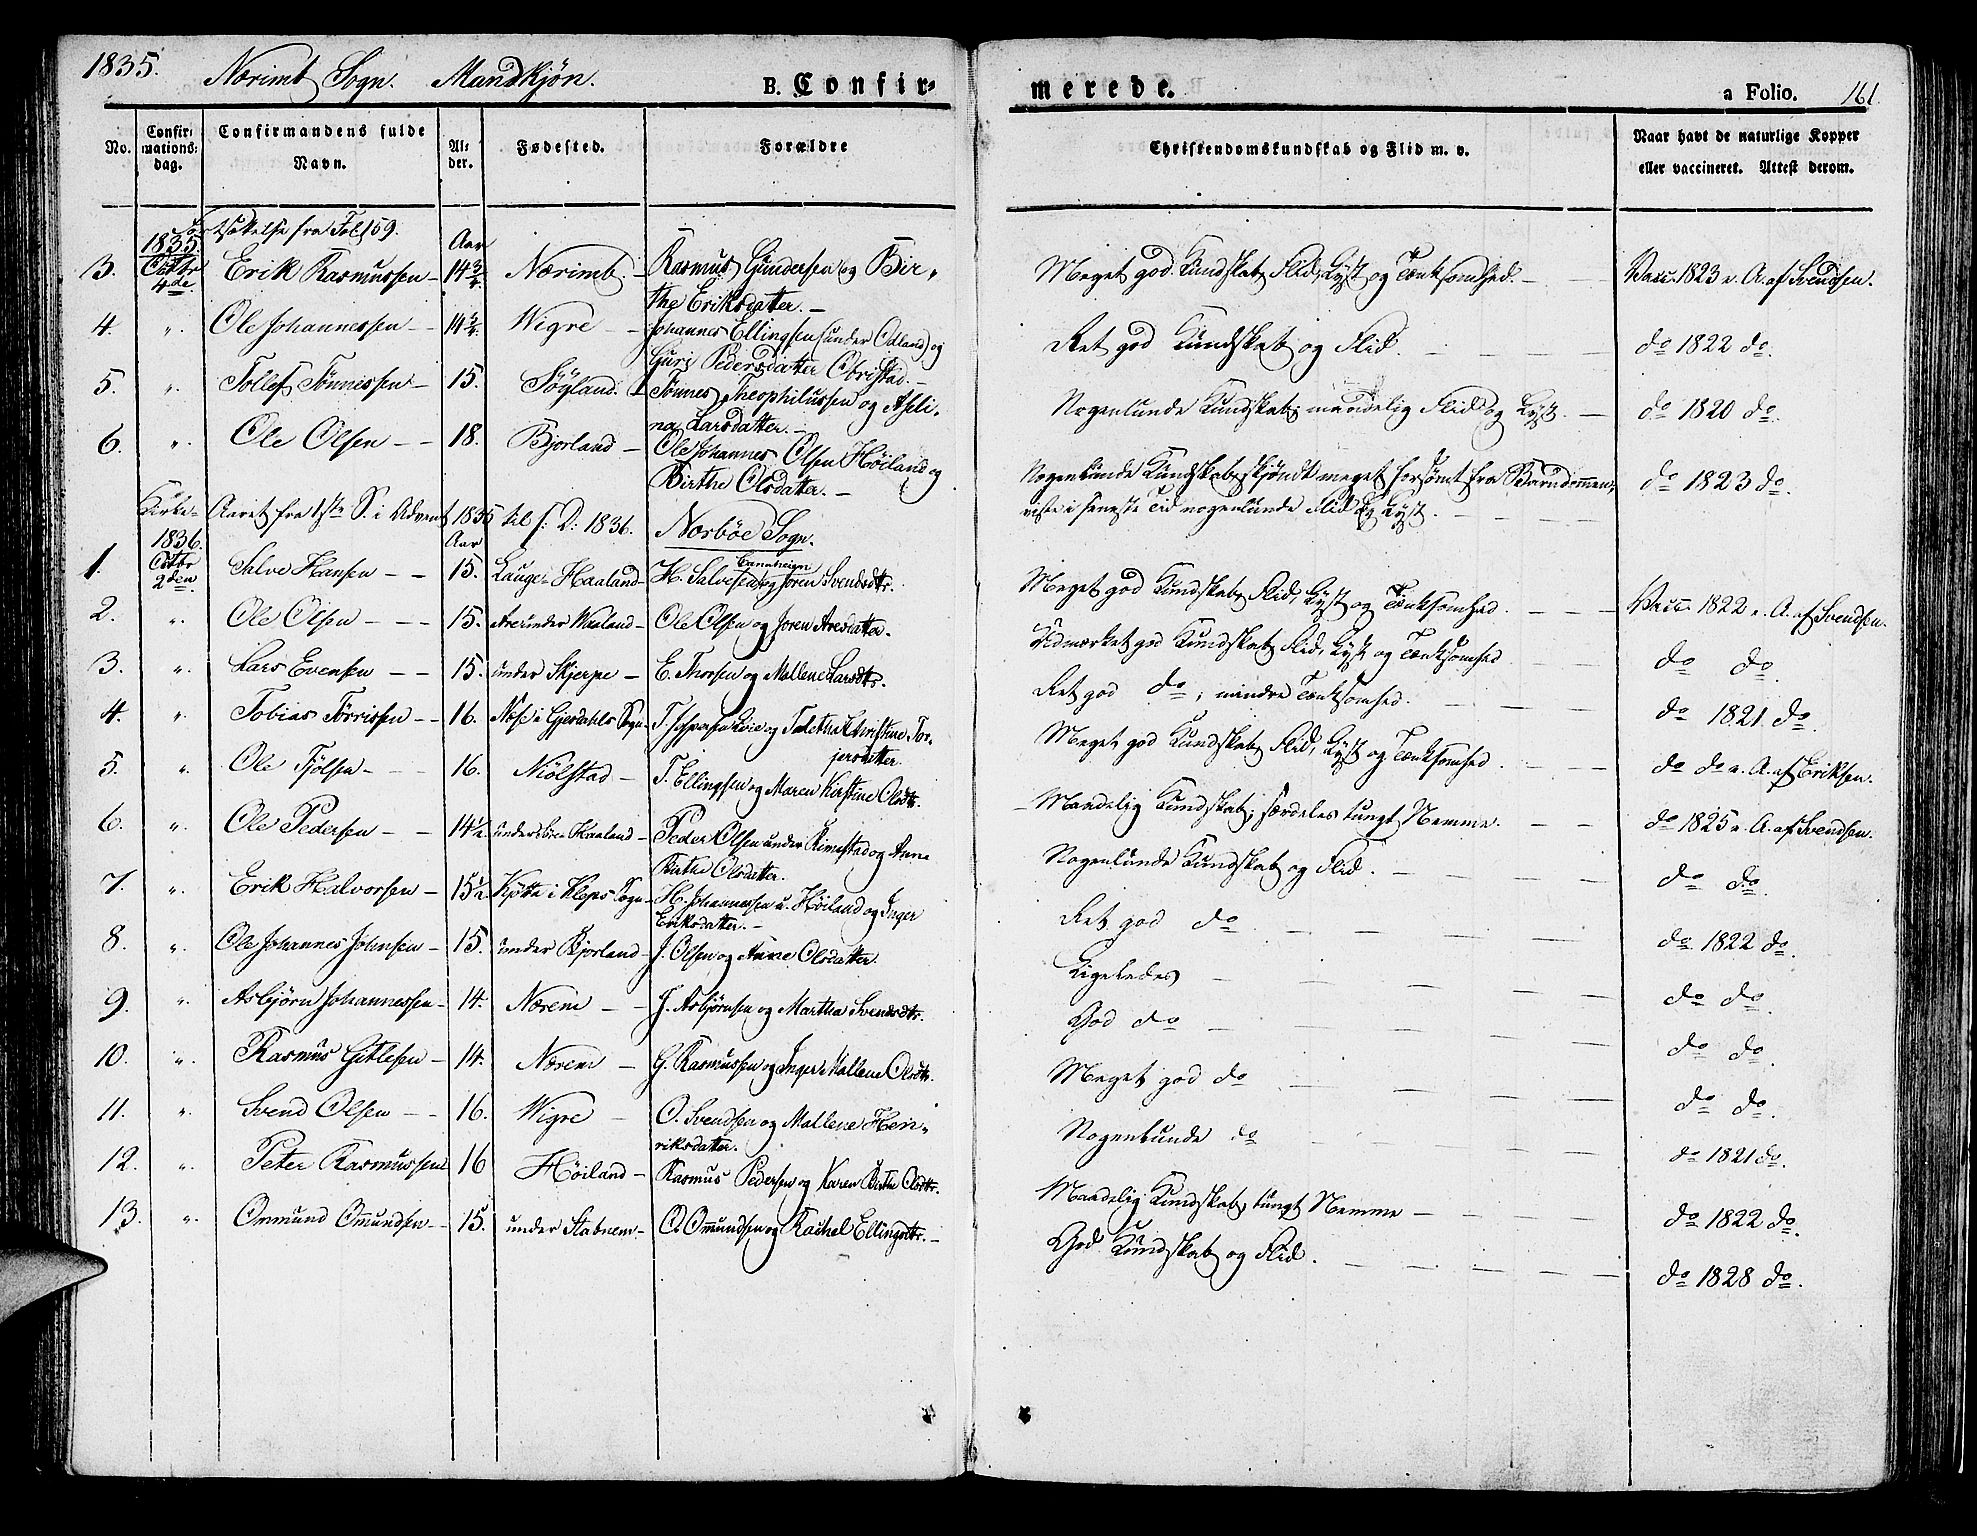 1835. Nærimb Sogn. Mandkjøn. B. Confir= merede. a Folio. 161.
No. Confir: mations: dag. Confirmandens fulde Navn. Al: der. Fødested. Forældre Christendomskundskab og Flid m. v. Naar havt de naturlige Kopper eller vaccineret. Attest derom.
Fortsættelse fra Fol. 159.
1835. Aar
3. Octbr 4de Erik Rasmussen – 14 3/4 Nærimb. – Rasmus Gundersen og Bir= Meget god Kundskab, Flid, Lyst og Tænksomhed. – Vacc. 1823 v. A. af Svendsen.
the Eriksdatter. –
4. ". Ole Johannessen – 14 3/4 Wigre – Johannes Ellingsen (under Odland) og Ret god Kundskab og Flid. do 1822 do.
Guri Pedersdatter Obristad. –
5. ". Tollef Tønnessen – 15. Söyland. Tønnes Theophilussen og Aseli= Nogenlunde Kundskab; maadelig Flid og Lyst. – do 1820 do.
na Larsdatter. –
6. ". Ole Olsen – – 18. Bjorland – Ole Johannes Olsen Höiland og Nogenlunde Kundskab, skjøndt meget forsømt fra Barndommen, do 1823 do.
Birthe Olsdatter. – viste i seneste Tid nogenlunde Flid og Lyst.
Kirke-Aaret fra 1ste S. i Advent 1835 til s: D: 1836. Norböe Sogn.
1836. Aar
1. Octbr 2den Salve Hansen – – 15. Lauge-Haaland – H. Salvesen og Joren Svendsdtr. Meget god Kundskab, Flid, Lyst og Tænksomhed. Vacc. 1822 v. A. af Svendsen.
2. ". Ole Olsen – – – 15. under Haaland – Ole Olsen og Joren Aresdatter. Udmærket god Kundskab, Flid, Lyst og Tænksomhed do do.
3. ". Lars Evensen – – 15. under Skjerpe – E. Thorsen og Mallene Larsdtr. Ret god do, mindre Tænksomhed. do 1821 do.
4. ". Tobias Törrissen – – 16. Næss i Gjesdahls Sogn – T. og Christine Tor= Meget god Kundskab, Flid, Lyst og Tænksomhed. do do v. A. af Eriksen.
jersdatter
5. ". Ole Tjölsen – 16. Niölstad – T. Ellingsen og Maren Kirstine Olsdtr. Maadelig Kundskab; særdeles tungt Nemme. do 1825 v. A. af Svendsen.
6. ". Ole Pedersen – – 14 1/2 Haaland – Peder Olsen under Rimestad og Anne Nogenlunde Kundskab og Flid. do do.
Birthe Olsdatter.
7. ". Erik Halvorsen – 15 1/2 i Kleps Sogn – H. Johannessen u. Höiland og Inger Ret god do do 1822 do.
Eriksdatter. –
8. ". Ole Johannes Johnsen – 15. under Bjorland – J. Olsen og Anne Olsdatter. Ligeledes do do.
9. ". Asbjörn Johannessen – 14. Nærem – J. Asbjörnsen og Martha Svendsdtr. God do do do.
10. ". Rasmus Gitlesen – 14. Nærem – G. Rasmussen og Inger Mallene Olsdtr. Meget god do do do.
11. ". Svend Olsen – – 16. Wigre – O. Svendsen og Mallene Hen= Nogenlunde do do 1821 do.
riksdatter.
12. ". Peter Rasmussen 16 Höiland – Rasmus Pedersen og Karen Birthe Olsdtr. Maadelig Kundskab, tungt Nemme – do 1822 do.
13. ". Ommund Ommundsen – 15. under Stabnem – O. Ommundsen og Rachel Ellingsdtr. – God Kundskab og Flid. do 1828 do.